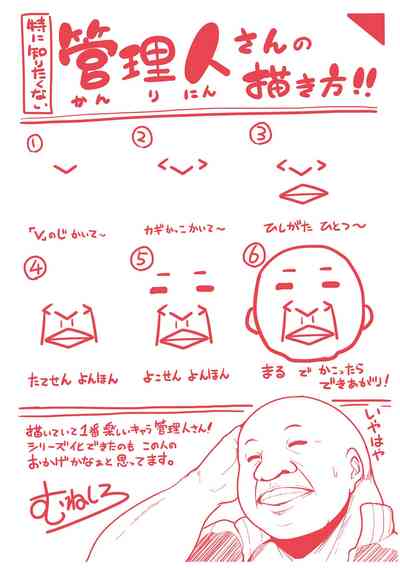 特に知りたくない
管理人さんの
かんりにん
描き方!!
①
②
③
「V」のじ かいて~
カギかっこかいて~
ひしがた ひとつ~
④
⑤
⑥
たてせん よんほん
よこせん よんほん
まる で かこったら
できあがり!
描いていて1番楽しいキャラ管理人さん!
シリーズ化できたのも この人の
おかげかなぁと思ってます。
いやはや
むねしろ